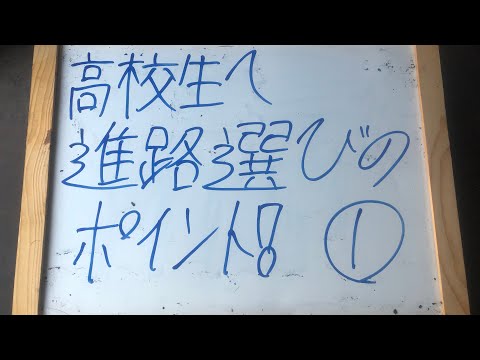 高校生へ
進路選びの
ポイント! ①